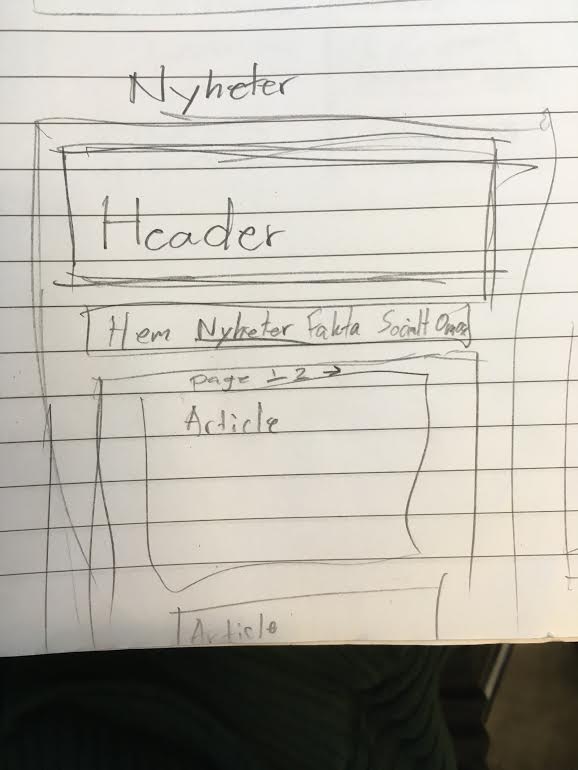 Nyheter
Header
Hem Nyheter Fakta Socialt
page 1 2 →
Article
Article